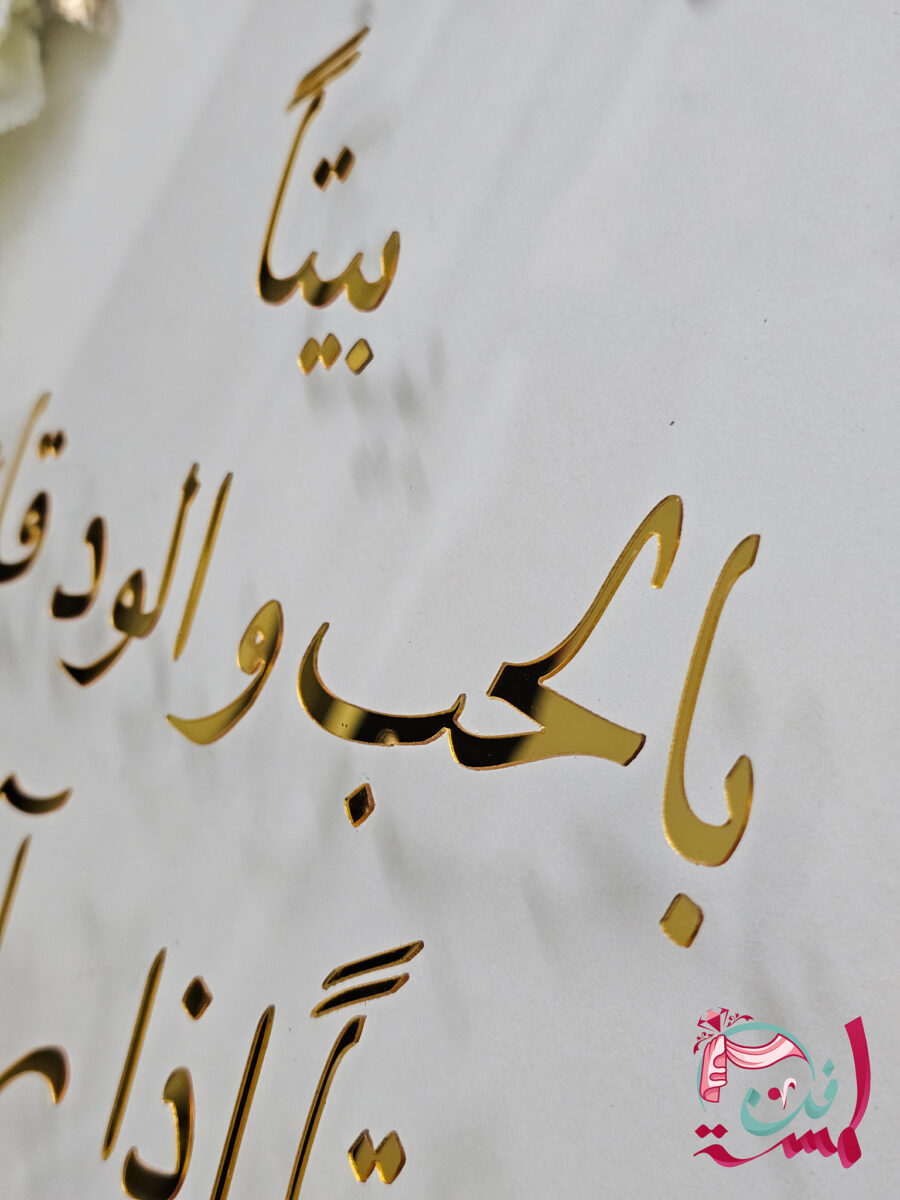 بيتاً
بالحب والود
اذا
لمسة فن